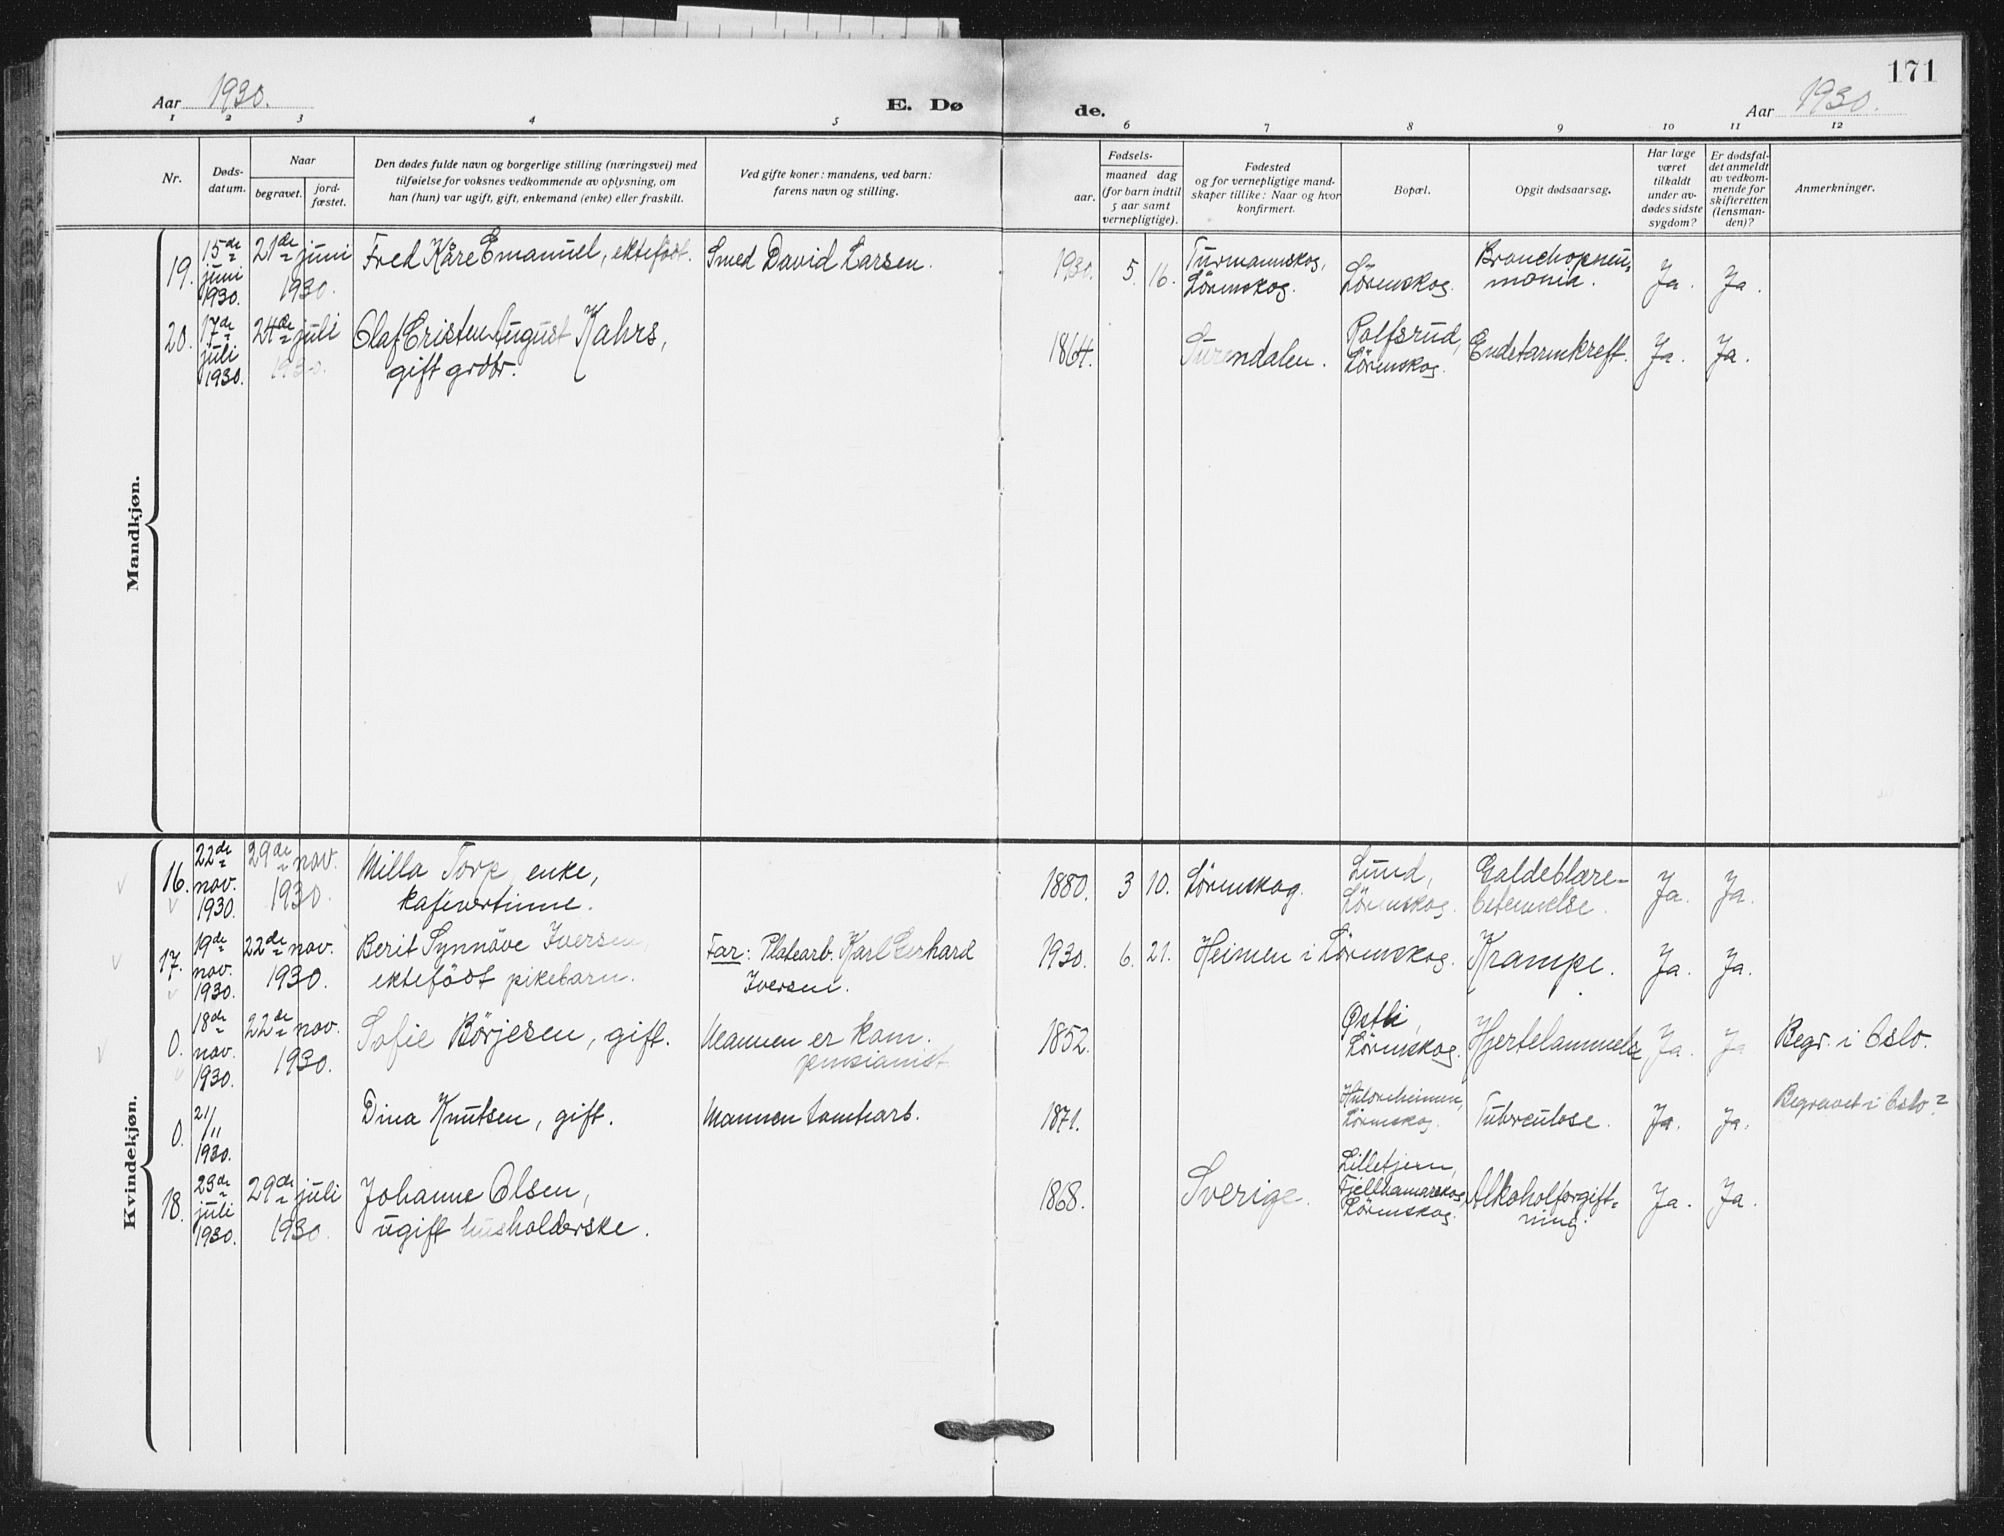 171
Aar 1930. E. Dø de. Aar 1930.
1 2 3 4 5 6 7 8 9 10 11 12
Nr.
Døds-
datum.
Naar
begravet.
jord-
fæstet.
Den dødes fulde navn og borgerlige stilling (næringsvei) med
tilføielse for voksnes vedkommende av oplysning, om
han (hun) var ugift, gift, enkemand (enke) eller fraskilt.
Ved gifte koner: mandens, ved barn:
farens navn og stilling.
Fødsels-
aar.
maaned dag
(for barn indtil
5 aar samt
vernepligtige).
Fødested
og for vernepligtige mand-
skaper tillike: Naar og hvor
konfirmert.
Bopæl.
Opgit dødsaarsag.
Har læge
været
tilkaldt
under av-
dødes sidste
sygdom?
Er dødsfal-
det anmeldt
av vedkom-
mende for
skifteretten
(lensman-
den)?
Anmerkninger.
Mandkjøn.
19.
15de
juni
1930.
21de juni
1930.
Fred Kåre Emanuel, ektefödt.
Smed David Larsen.
1930. 5. 16.
Turmannskog,
Lörenskog.
Lörenskog.
Bronchopneu-
monia.
Ja. Ja.
20.
17de
juli
1930.
24de juli
1930.
Olaf Cristen August Kahrs,
gift grdbr.
1864.
Surendalen.
Rolfsrud,
Lörenskog.
Endetarmkreft.
Ja. Ja.
Kvindekjøn.
16.
22de
nov.
1930.
29de nov.
1930.
Milla Torp, enke,
kafévertinne.
1880. 3 10.
Lörenskog.
Lund,
Lörenskog.
Galdeblære-
betennelse.
Ja. Ja.
17.
19de
nov.
1930.
22de nov.
1930.
Berit Synnöve Iversen,
ektefödt pikebarn.
Far: Platearb. Karl Gerhard
Iversen.
1930. 6. 21.
Heimen i Lörenskog.
Krampe.
Ja. Ja.
0.
18de
nov.
1930.
22de nov.
1930.
Sofie Børjesen, gift.
Mannen er kom.
pensionist.
1852.
Østli,
Lörenskog.
Hjertelammelse
Ja. Ja
Begr. i Oslo.
0.
21/11
1930.
Dina Knutsen, gift.
Mannen tomtearb.
1871.
Lörenskog.
Tuberculose.
Ja. Ja.
Begravet i Oslo?
18.
23de
juli
1930.
29de juli
1930.
Johanne Olsen,
ugift husholderske.
1868.
Sverige.
Lilletjern,
Fjellhamarskog,
Lörenskog.
Alkoholforgift-
ning.
Ja. Ja.